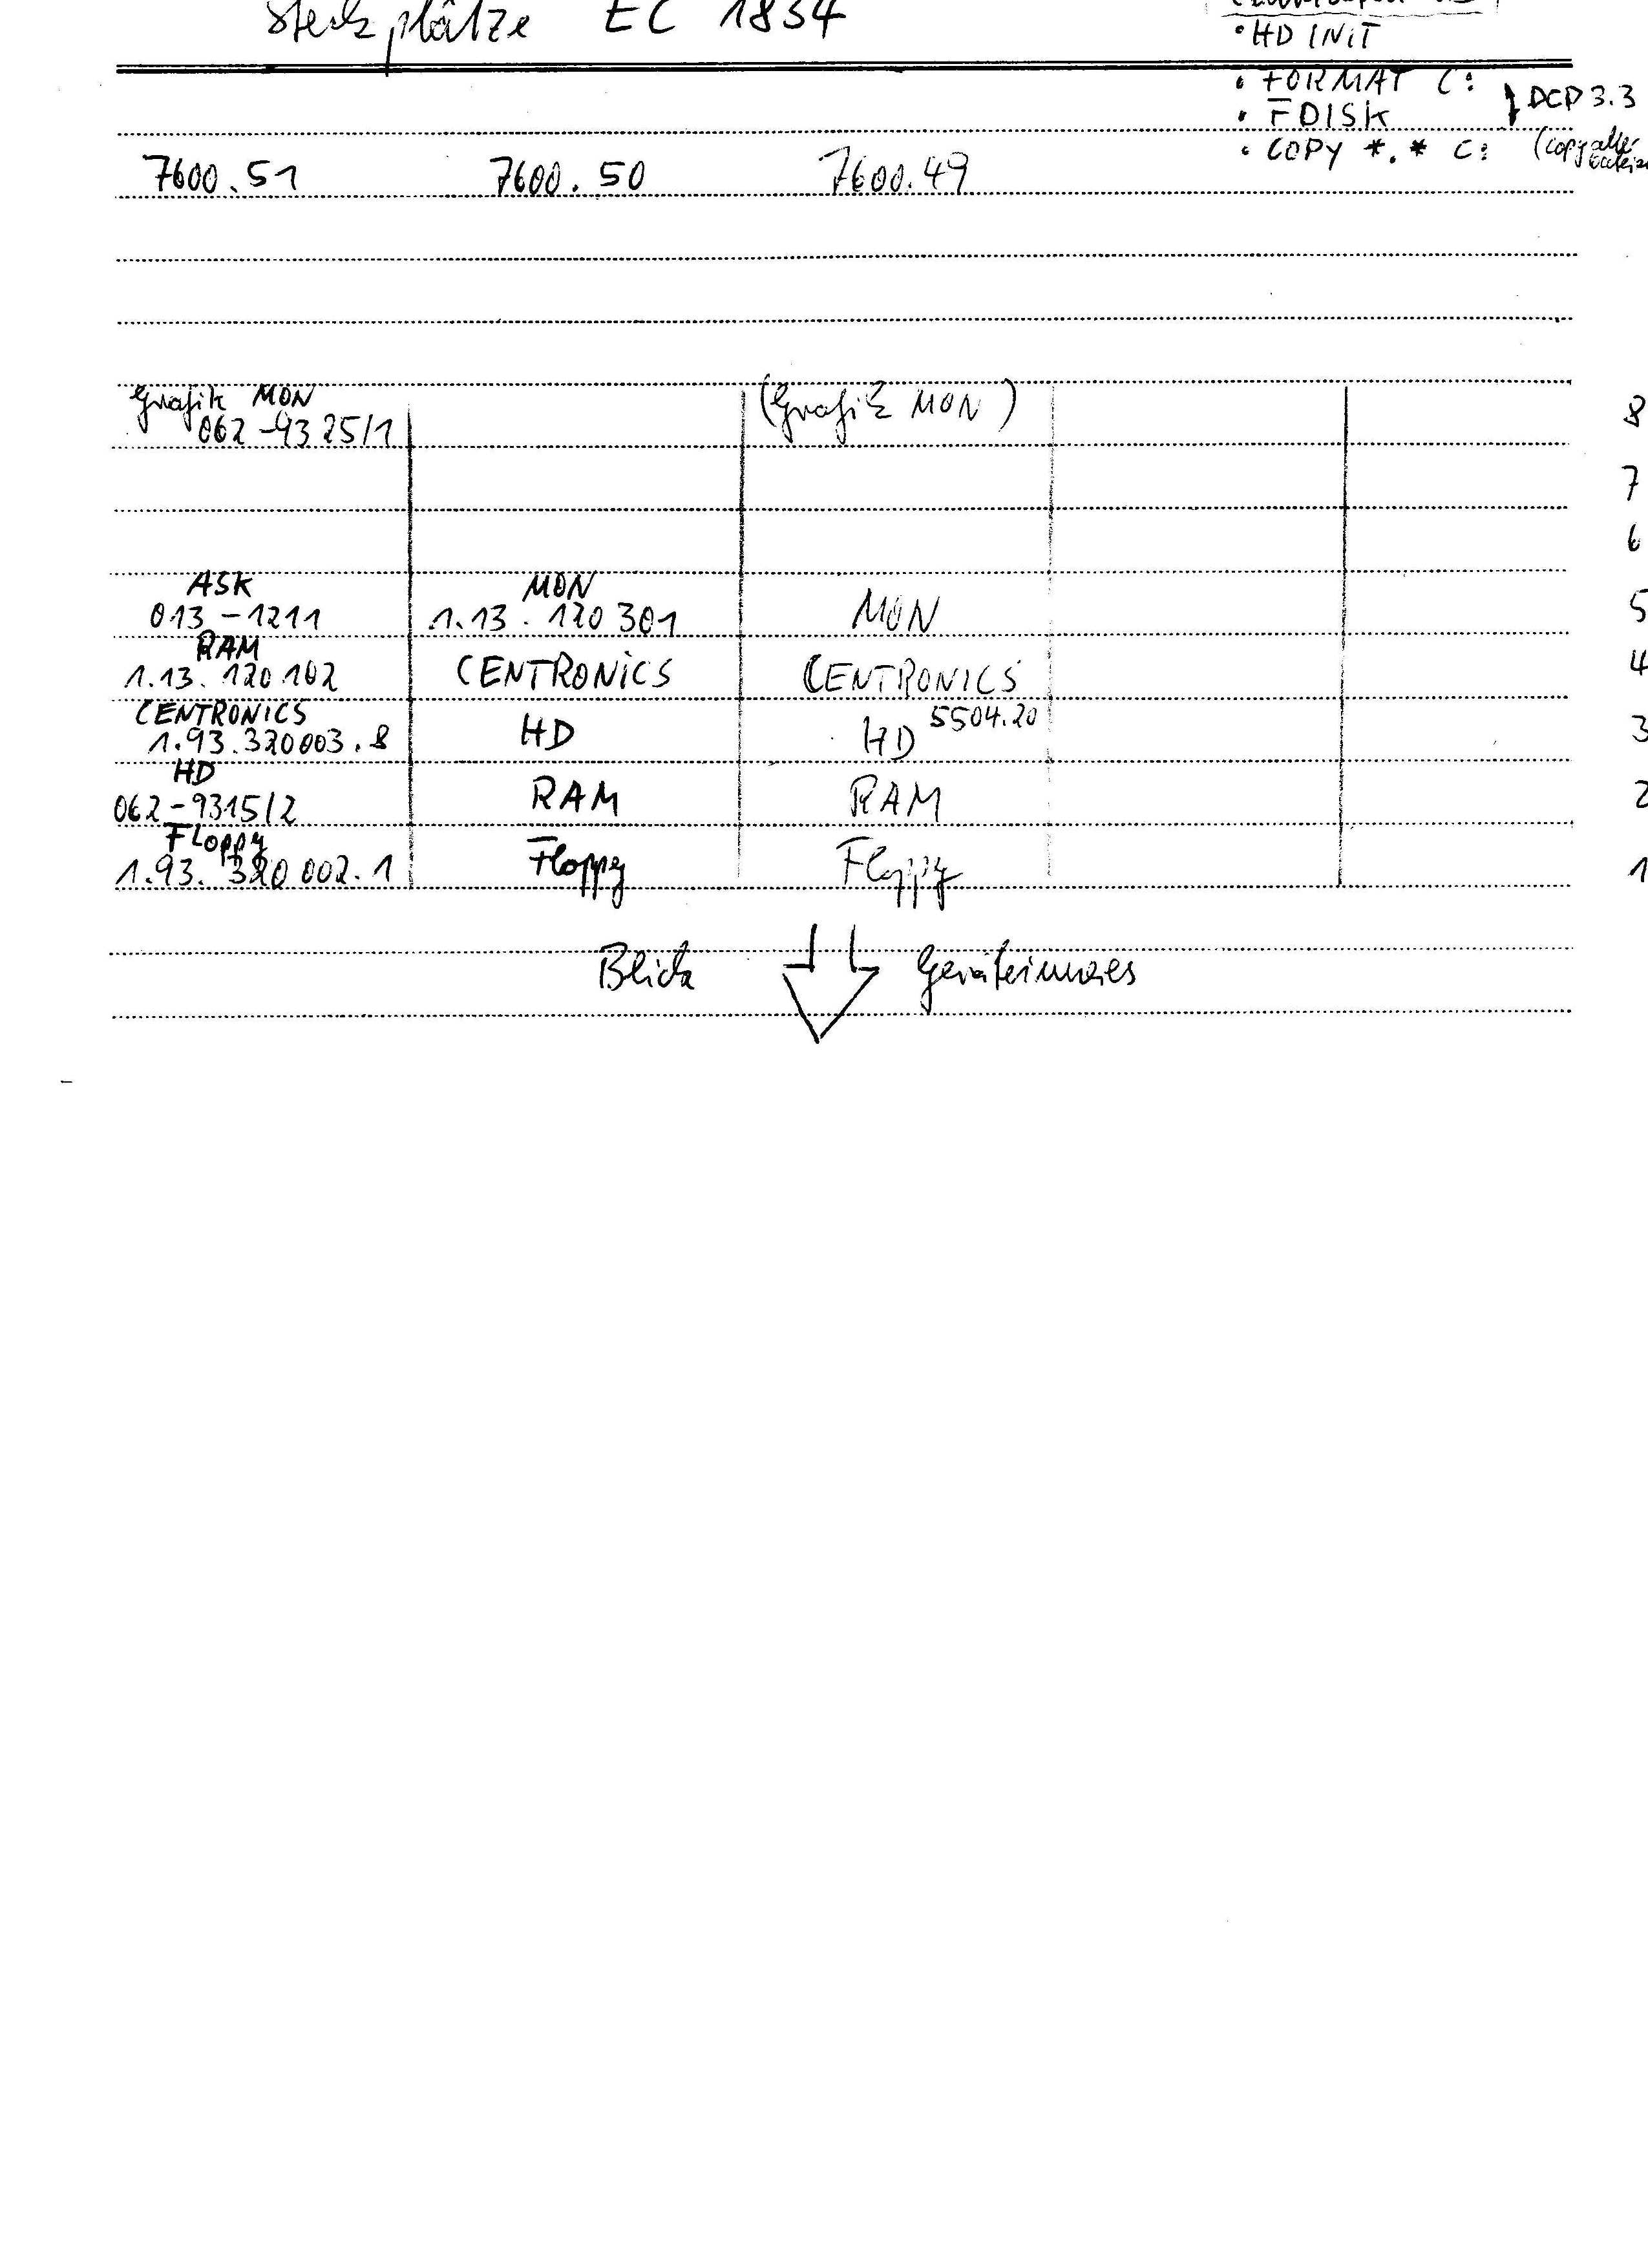 Steckplätze EC 1834
• HD INIT
• FORMAT C:
• FDISK
DCP 3.3
• COPY *.* C: (copy aller
7600.51 7600.50 7600.49
Grafik MON (Grafik MON) 8
062-9325/1
7
6
ASK MON
013-1211 1.13.120301 MON 5
RAM
1.13.120102 CENTRONICS CENTRONICS 4
CENTRONICS
1.93.320003.8 HD HD 5504.20 3
HD
062-9315/2 RAM RAM 2
Floppy
1.93.320002.1 Floppy Floppy 1
Blick Geräteinneres